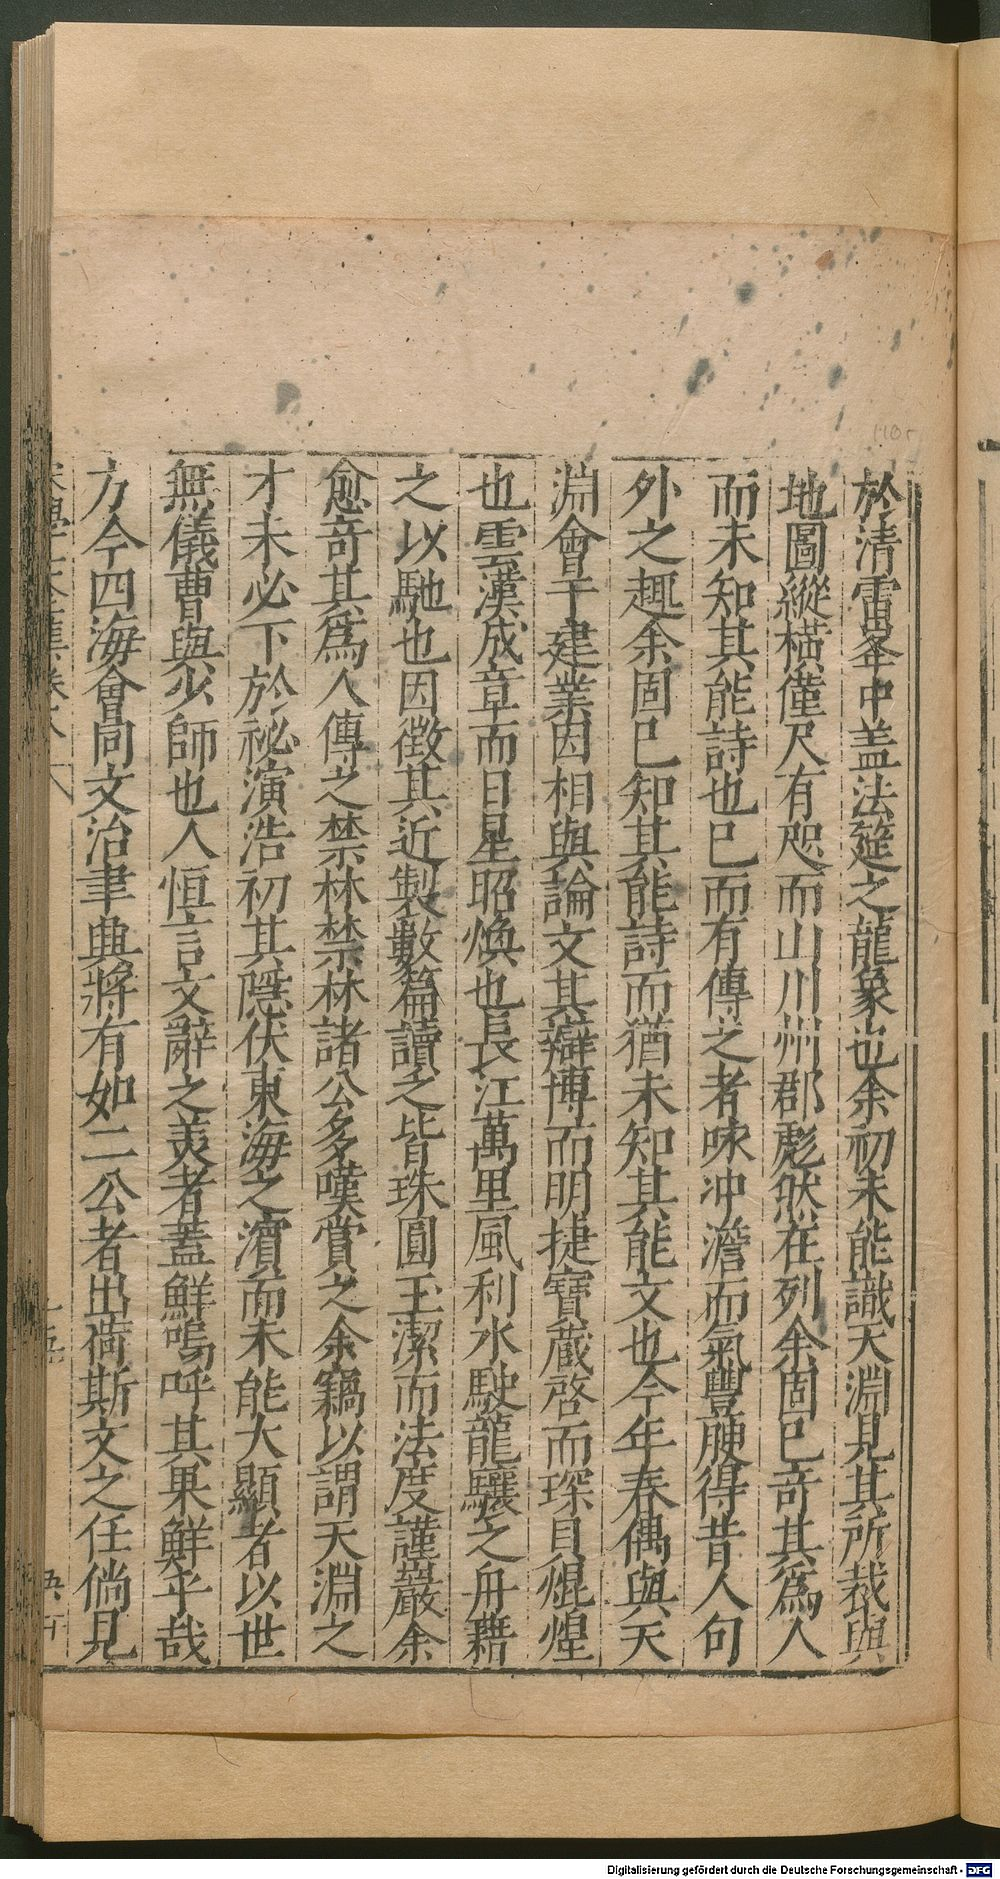 於清雷峯中盖法筵之龍象也余初未能識天淵見其所裁與
地圖縱橫僅尺有咫而山川州郡彪然在列余固已奇其爲人
而未知其能詩也已而有傳之者味冲澹而氣豐腴得昔人句
外之趣余固已知其能詩而猶未知其能文也今年春偶與天
淵會于建業因相與論文其辯博而明捷寶藏啓而琛貝焜煌
也雲漢成章而日星昭煥也長江萬里風利水駛龍驤之舟藉
之以馳也因徵其近製數篇讀之皆珠圓玉潔而法度謹嚴余
愈奇其爲人傳之禁林禁林諸公多嘆賞之余竊以謂天淵之
才未必下於祕演浩初其隱伏東海之濱而未能大顯者以世
無儀曹與少師也人恒言文辭之美者蓋鮮嗚呼其果鮮乎哉
方今四海會同文治聿興將有如二公者出荷斯文之任倘見
宋學士文集卷八